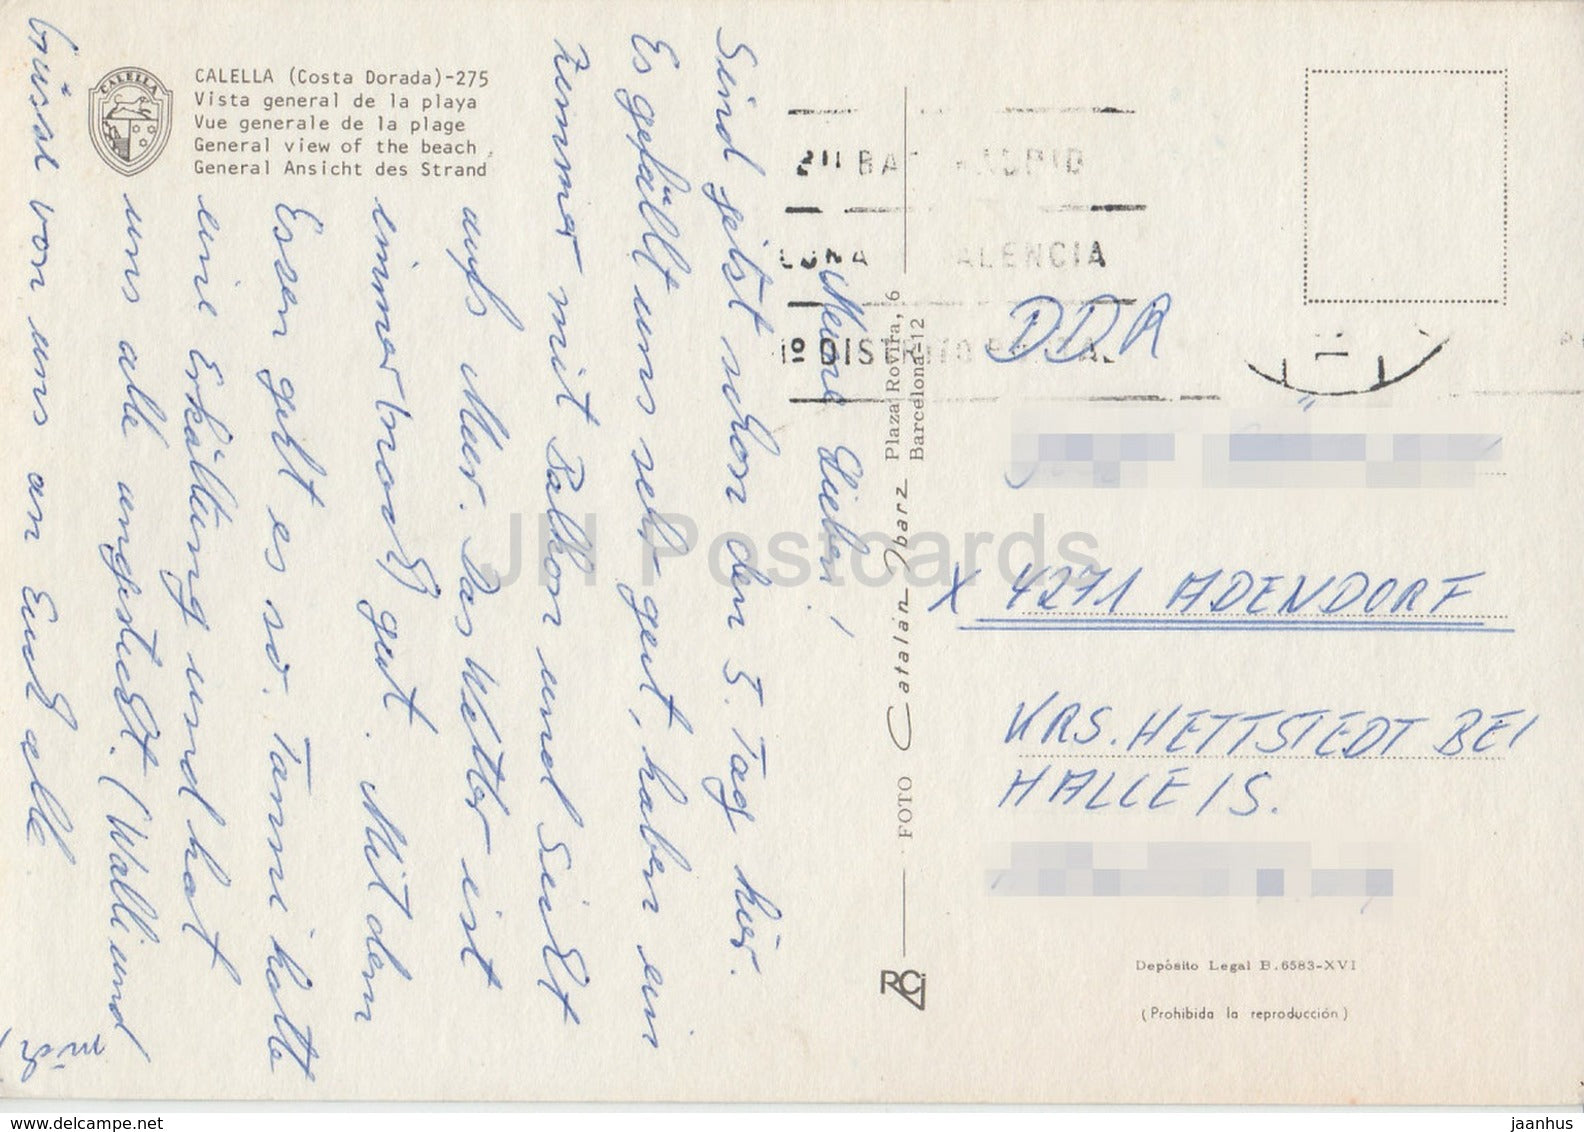 CALELLA
CALELLA (Costa Dorada)-275
Vista general de la playa
Vue generale de la plage
General view of the beach
General Ansicht des Strand
Meine Lieben!
Sind jetzt schon den 5. Tag hier.
Es gefällt uns sehr gut, haben ein
Zimmer mit Balkon und Sicht
aufs Meer. Das Wetter ist
immer noch gut. Mit dem
Essen geht es so. Tanni hatte
eine Erkältung und hat
uns alle angesteckt. (Walli und
mich)
Grüsse von uns an Euch alle
FOTO Catalán Ibarz Plaza Rovira, 6
Barcelona-12
RCj
BA
LONA VALENCIA
1º DIST
DDR
X 4271 ADENDORF
KRS. HETTSTEDT BEI
HALLE/S.
Depósito Legal B.6583-XVI
(Prohibida la reproducción)
JH Postcards
www.delcampe.net
jaanhus